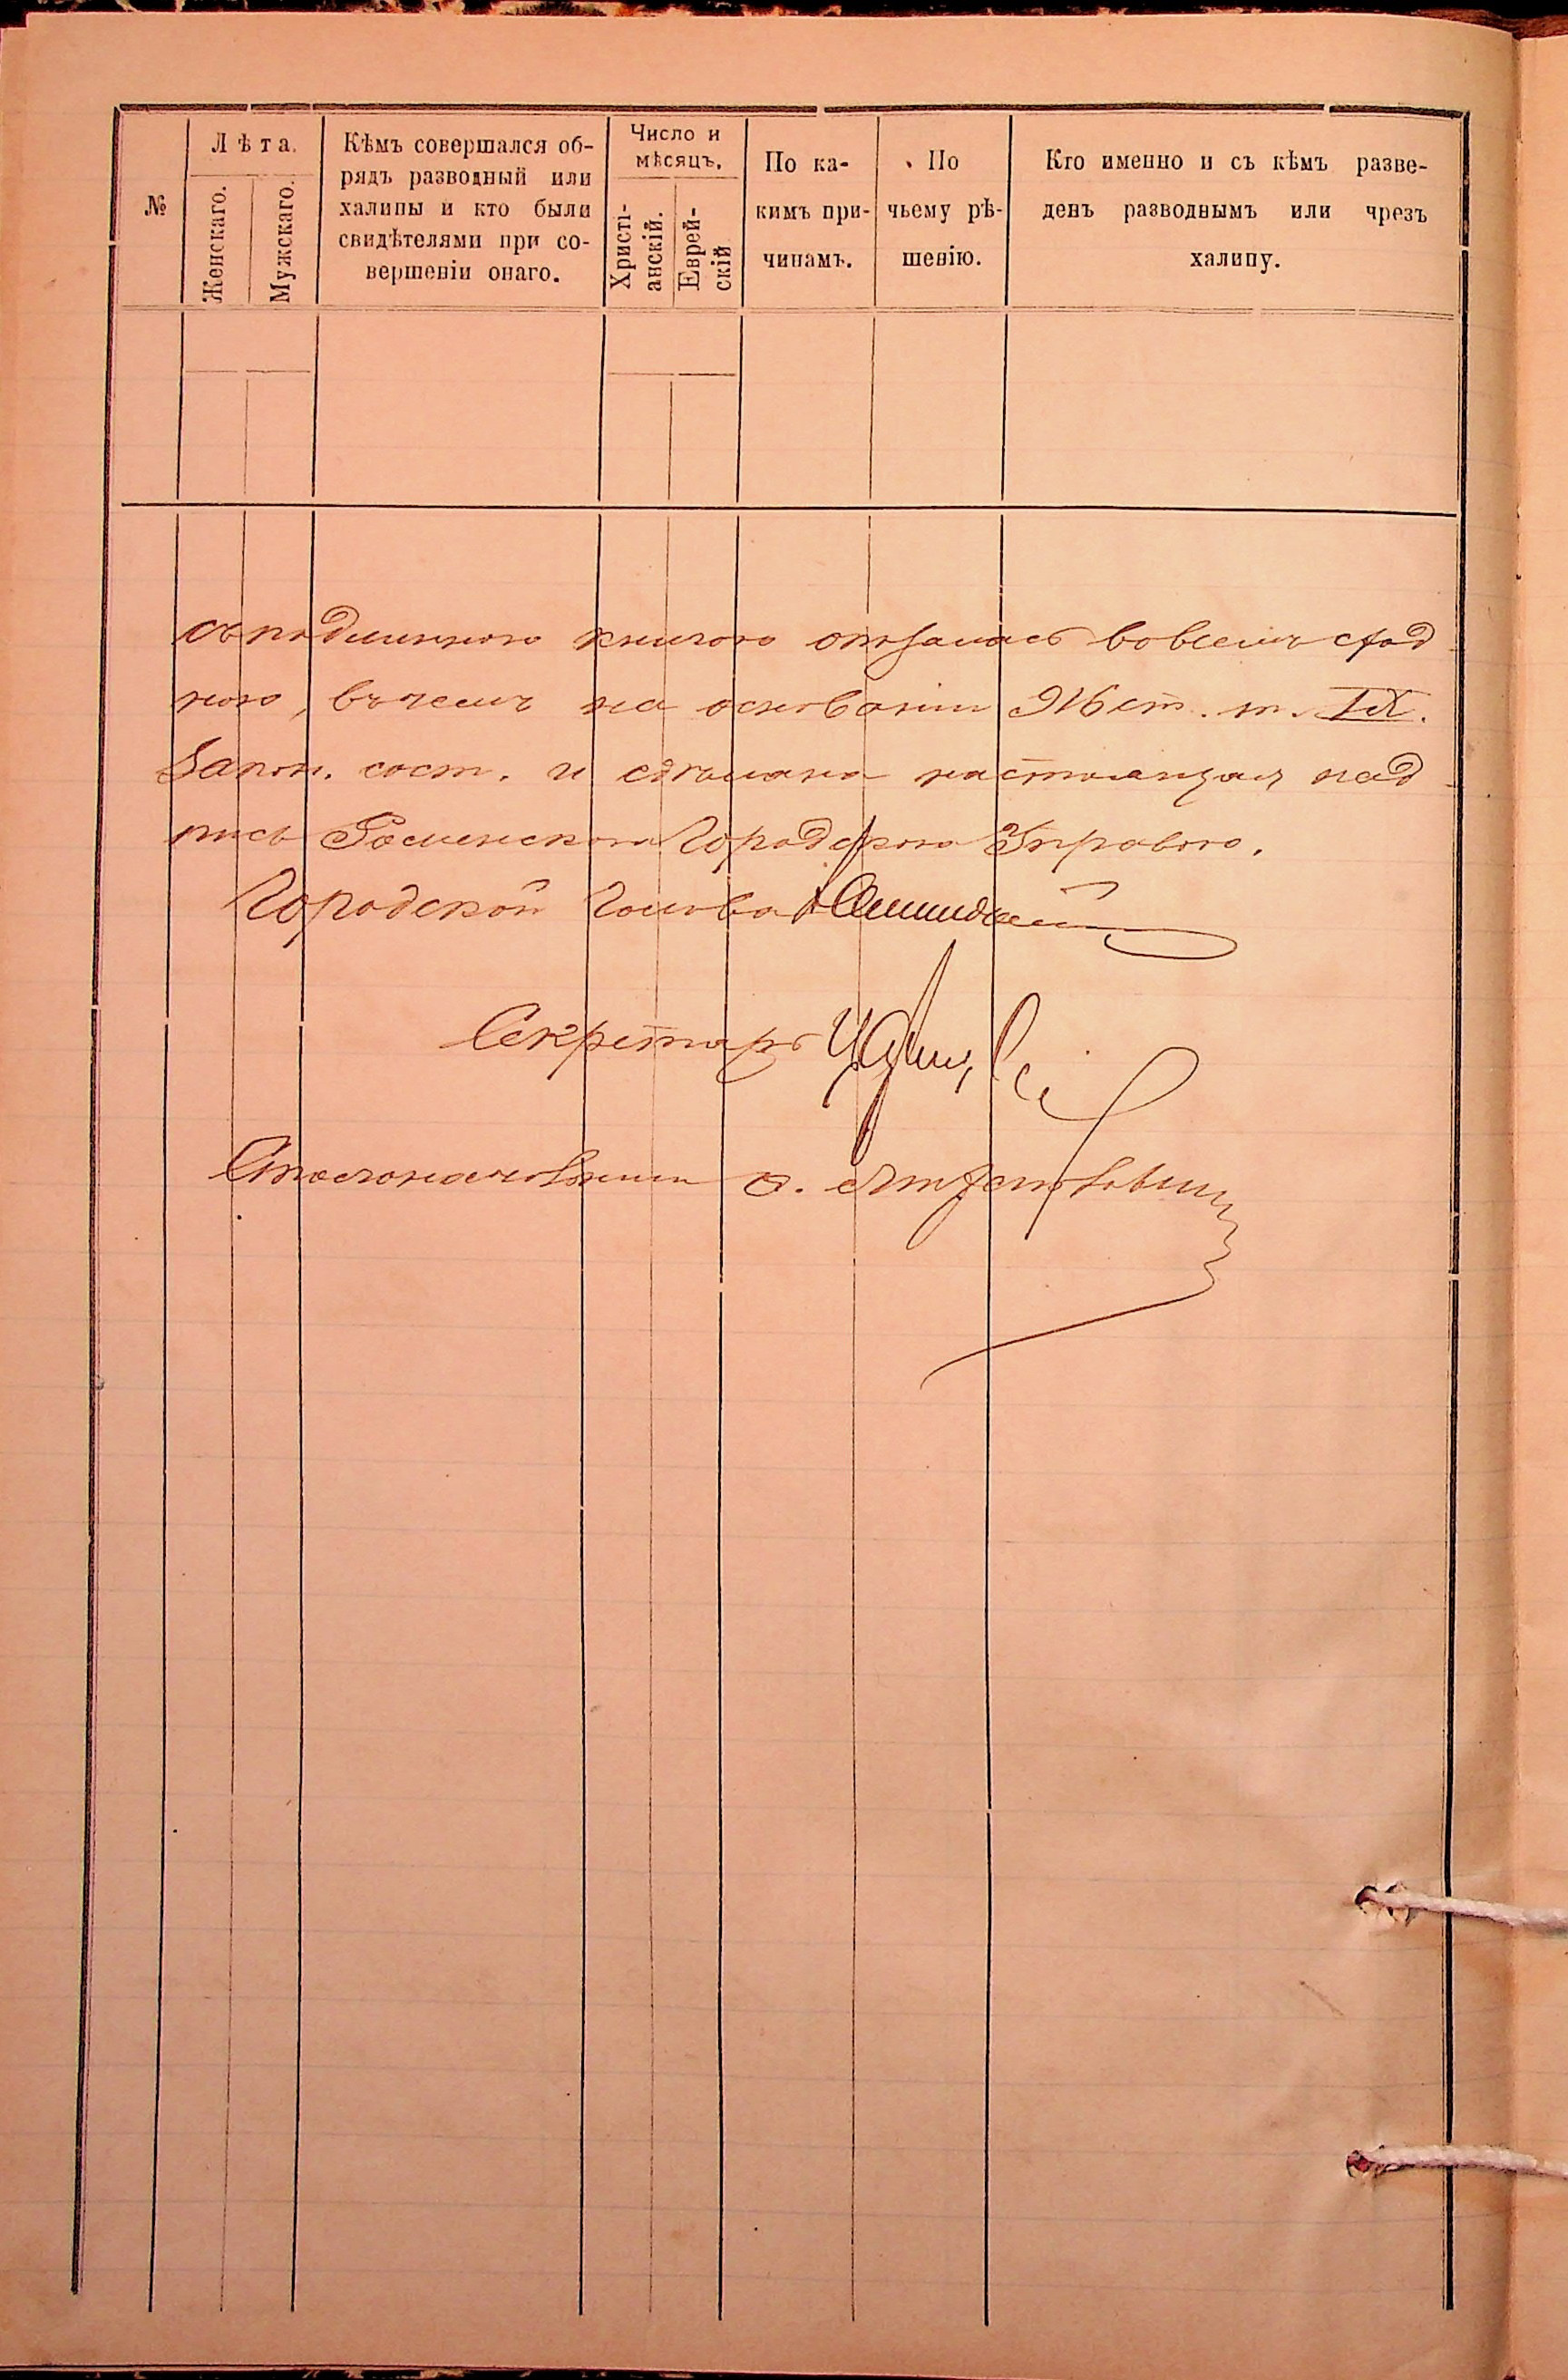 №
Лѣта.
Женскаго.
Мужскаго.
Кѣмъ совершался об-
рядъ разводный или
халицы и кто были
свидѣтелями при со-
вершеніи онаго.
Число и
мѣсяцъ.
Христі-
анскій.
Еврей-
скій
По ка-
кимъ при-
чинамъ.
По
чьему рѣ-
шенію.
Кто именно и съ кѣмъ разве-
денъ разводнымъ или чрезъ
халицу.
съ подлинною книгою оказалась во всемъ сход
ною, въ чемъ на основаніи 916 ст. т. IX.
Закон. сост. и сдѣлана настоящая над
пись Роменскою Городскою Управою.
Городской Голова
Секретарь
Столоначальникъ